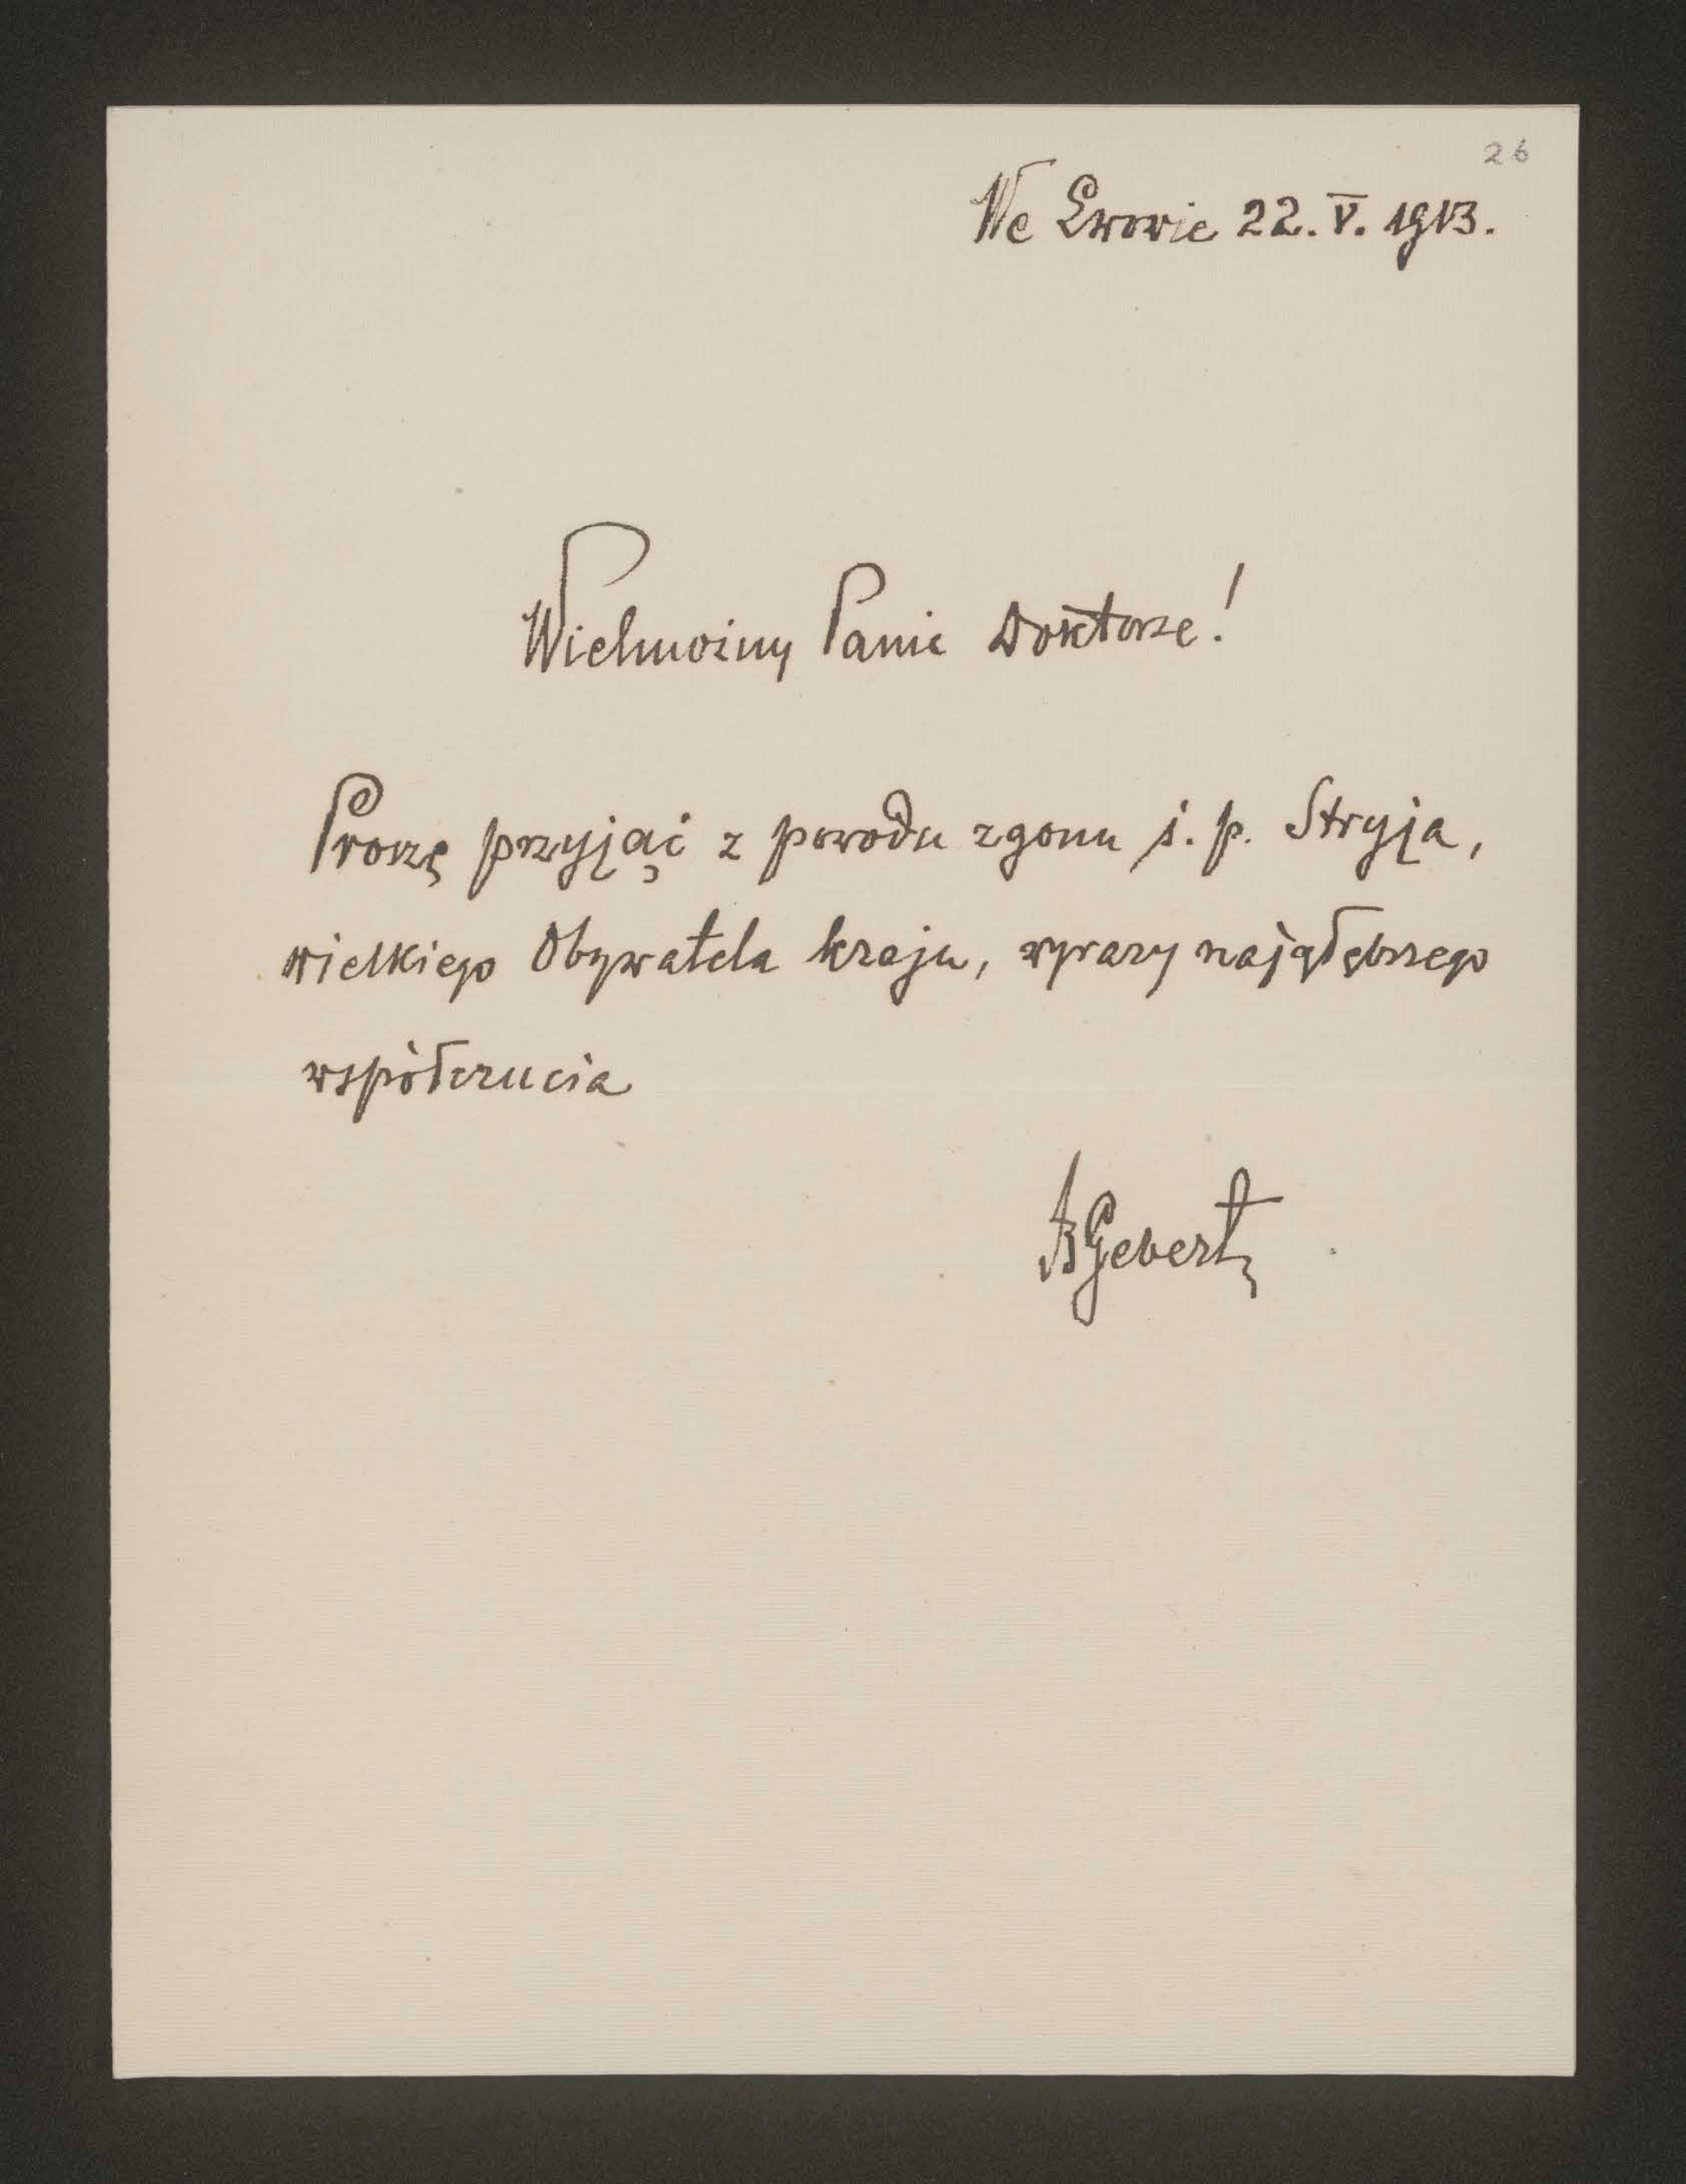 26
We Lwowie 22. V. 1913.
Wielmożny Panie Doktorze!
Proszę przyjąć z powodu zgonu ś. p. Stryja,
wielkiego Obywatela kraju, wyrazy najgłębszego
współczucia
BGebert